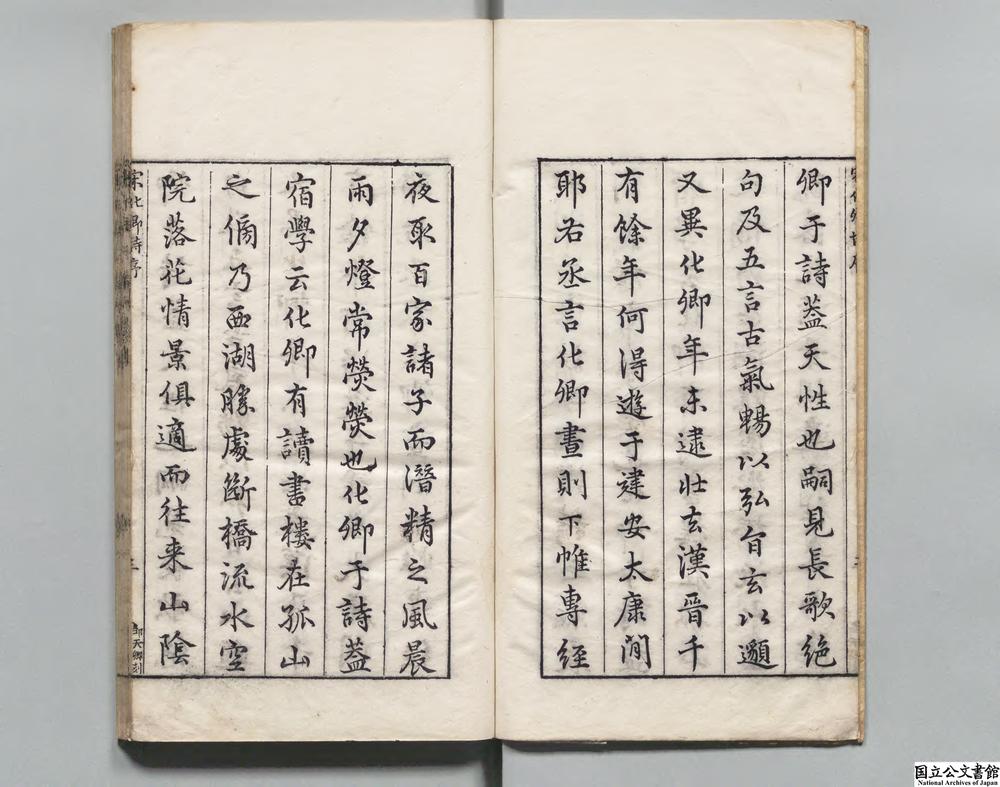 卿于詩葢天性也嗣見長歌絶
句及五言古氣暢以弘旨玄以邈
又異化卿年未逮壯去漢晉千
有餘年何得遊于建安太康間
耶右丞言化卿晝則下帷專經
夜取百家諸子而潛精之風晨
雨夕燈常熒熒也化卿于詩葢
宿學云化卿有讀書樓在孤山
之傍乃西湖勝處斷橋流水空
院落花情景俱適而往来山陰
宋化卿詩序
三
鄒天卿刻
国立公文書館
National Archives of Japan